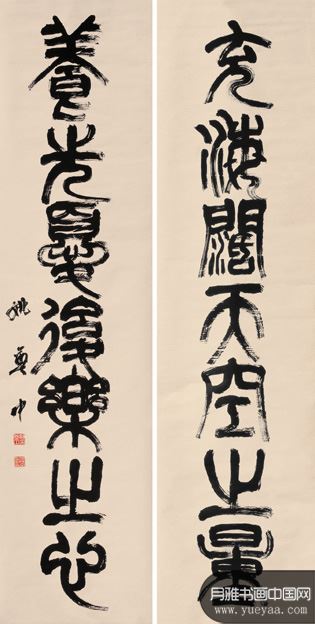 充海闊天空之量
養先憂後樂之心
姚奠中
月雅书画中国网
www.yueyaa.com